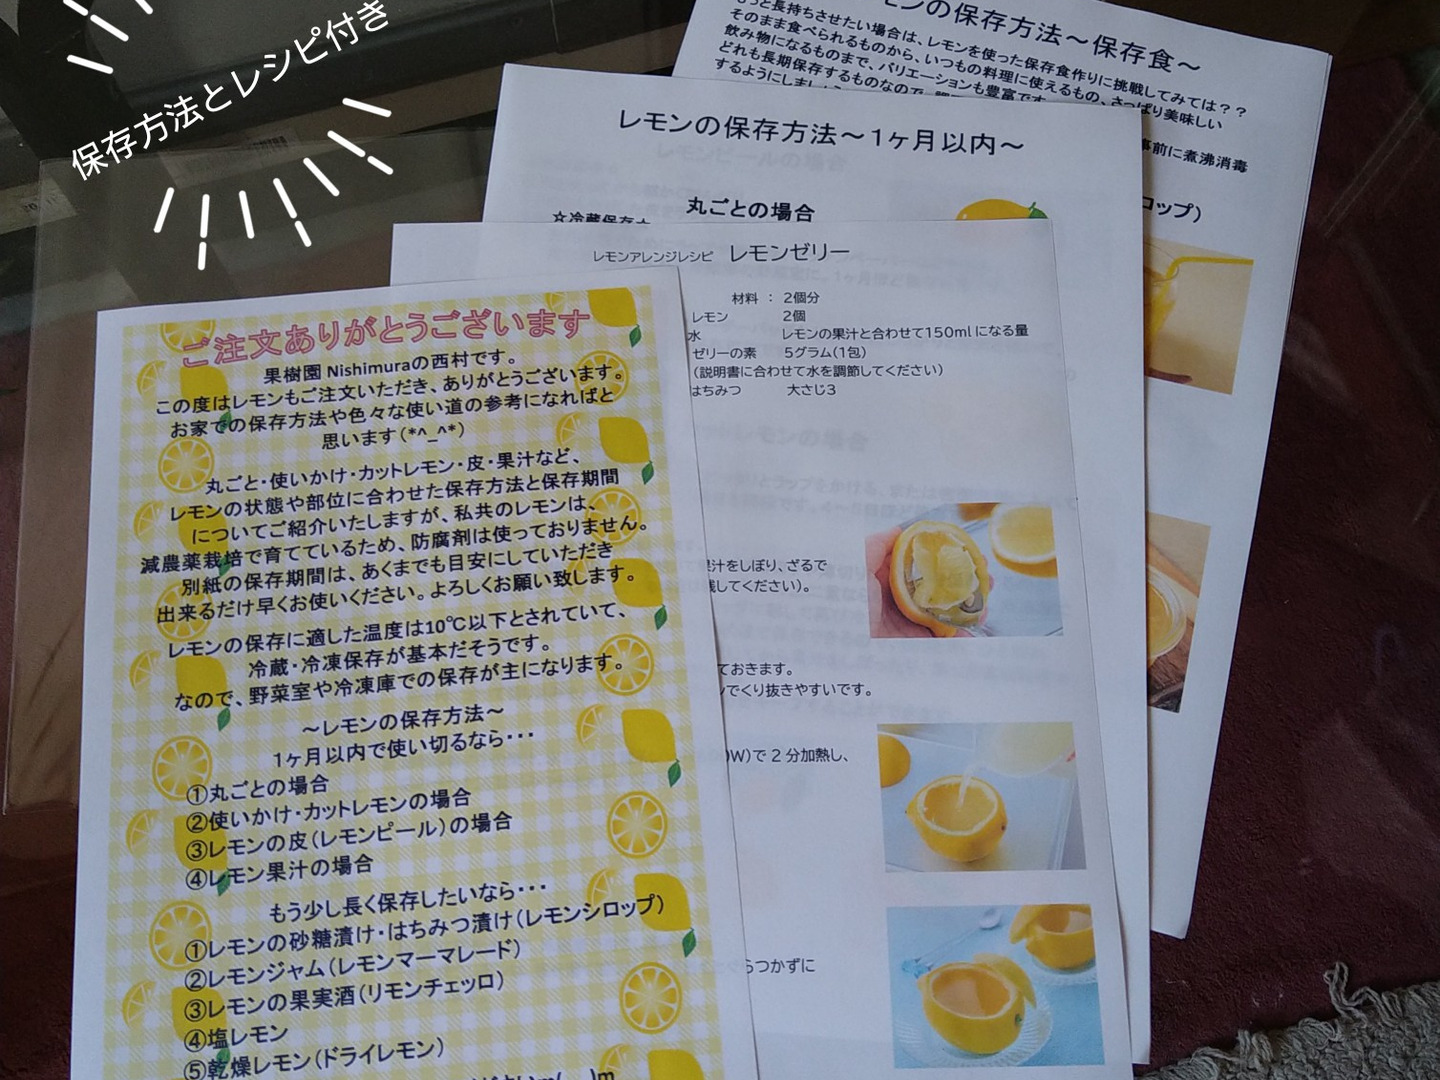 保存方法とレシピ付き
ンの保存方法～保存食～
っと長持ちさせたい場合は、レモンを使った保存食作りに挑戦してみては？？
そのまま食べられるものから、いつもの料理に使えるもの、さっぱり美味しい
飲み物になるものまで、バリエーションも豊富です
どれも長期保存するものなので
するようにしましょう
事前に煮沸消毒
ロップ）
レモンの保存方法～1ヶ月以内～
丸ごとの場合
☆冷蔵保存☆
レモンアレンジレシピ レモンゼリー
材料 ： 2個分
レモン 2個
水 レモンの果汁と合わせて150mlになる量
ゼリーの素 5グラム（1包）
（説明書に合わせて水を調節してください）
はちみつ 大さじ3
果汁をしぼり、ざるで
残してください）。
ておきます。
ンでくり抜きやすいです。
00W）で２分加熱し、
らつかずに
ご注文ありがとうございます
果樹園 Nishimuraの西村です。
この度はレモンもご注文いただき、ありがとうございます。
お家での保存方法や色々な使い道の参考になればと
思います（*^_^*）
丸ごと・使いかけ・カットレモン・皮・果汁など、
レモンの状態や部位に合わせた保存方法と保存期間
についてご紹介いたしますが、私共のレモンは、
減農薬栽培で育てているため、防腐剤は使っておりません。
別紙の保存期間は、あくまでも目安にしていただき
出来るだけ早くお使いください。よろしくお願い致します。
レモンの保存に適した温度は10℃以下とされていて、
冷蔵・冷凍保存が基本だそうです。
なので、野菜室や冷凍庫での保存が主になります。
～レモンの保存方法～
1ヶ月以内で使い切るなら・・・
①丸ごとの場合
②使いかけ・カットレモンの場合
③レモンの皮（レモンピール）の場合
④レモン果汁の場合
もう少し長く保存したいなら・・・
①レモンの砂糖漬け・はちみつ漬け（レモンシロップ）
②レモンジャム（レモンマーマレード）
③レモンの果実酒（リモンチェッロ）
④塩レモン
⑤乾燥レモン（ドライレモン）